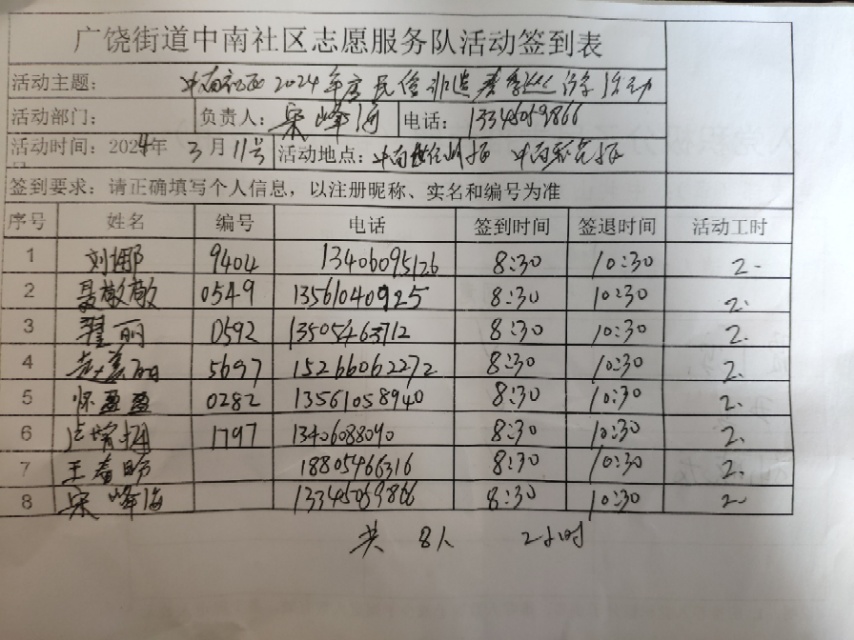 广饶街道中南社区志愿服务队活动签到表
活动主题: 中南社区2024年度民俗非遗 活动
活动部门: 负责人: 宋峰海 电话: 13345059866
活动时间: 2024年3月11号 活动地点: 中南 中南
签到要求: 请正确填写个人信息，以注册昵称、实名和编号为准
序号 姓名 编号 电话 签到时间 签退时间 活动工时
1 刘娜 9404 13406095126 8:30 10:30 2.
2 聂敬敬 0549 13561040925 8:30 10:30 2.
3 翟丽 0592 13505463712 8:30 10:30 2.
4 5697 15266062272 8:30 10:30 2.
5 怀盈盈 0282 13561058940 8:30 10:30 2.
6 1797 13406088090 8:30 10:30 2.
7 王春 18805466316 8:30 10:30 2.
8 宋峰海 13345059866 8:30 10:30 2
共 8人 2小时